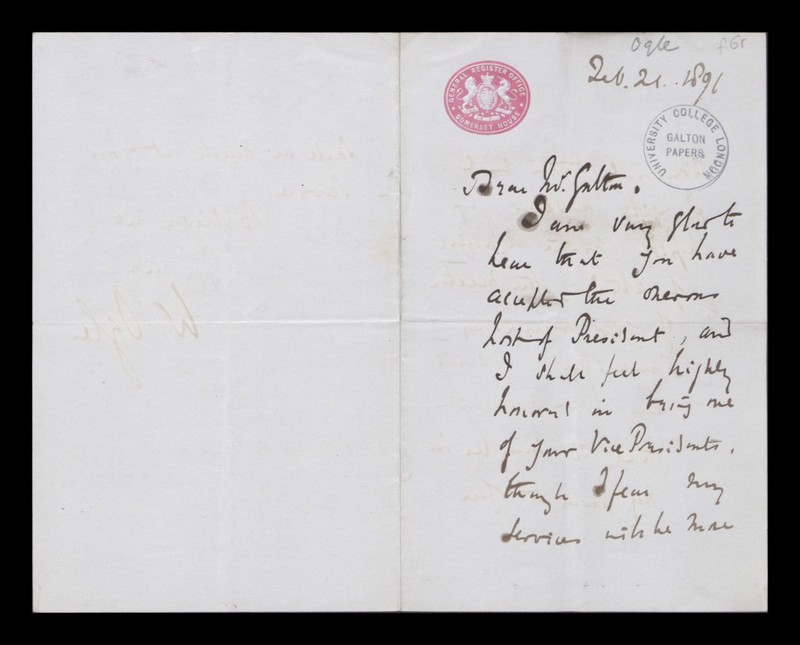 Ogle f6r
Feb. 21. 1891
GENERAL REGISTER OFFICE
SOMERSET HOUSE
UNIVERSITY COLLEGE LONDON
GALTON
PAPERS
Dear Mr. Galton.
I am very glad to
hear that you have
accepted the onerous
post of President, and
I shall feel highly
honored in being one
of your Vice Presidents,
though I fear my
services will be more
W. Ogle